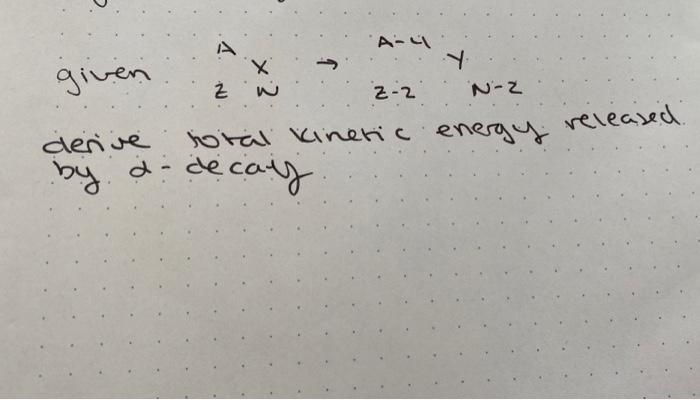 given A X Z N → A-4 Y Z-2 N-2
derive total kinetic energy released
by α-decay